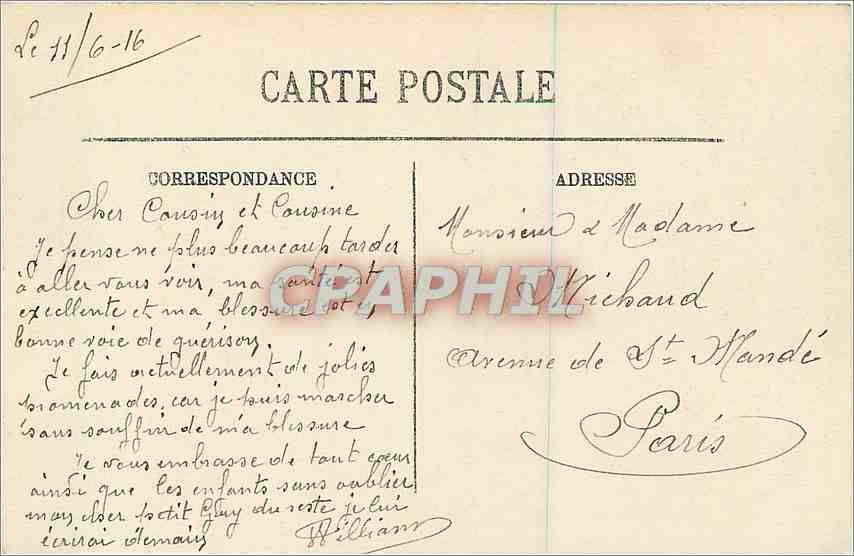 Le 11/6-16
CARTE POSTALE
CORRESPONDANCE
Cher Cousin et Cousine
Je pense ne plus beaucoup tarder
à aller vous voir, ma santé est
excellente et ma blessure est en
bonne voie de guérison.
Je fais actuellement de jolies
promenades, car je puis marcher
sans souffrir de ma blessure
Je vous embrasse de tout cœur
ainsi que les enfants sans oublier
mon cher petit Guy du reste je lui
écrirai demain
William
ADRESSE
Monsieur & Madame
Michaud
Avenue de St Mandé
Paris
CPAPHIL